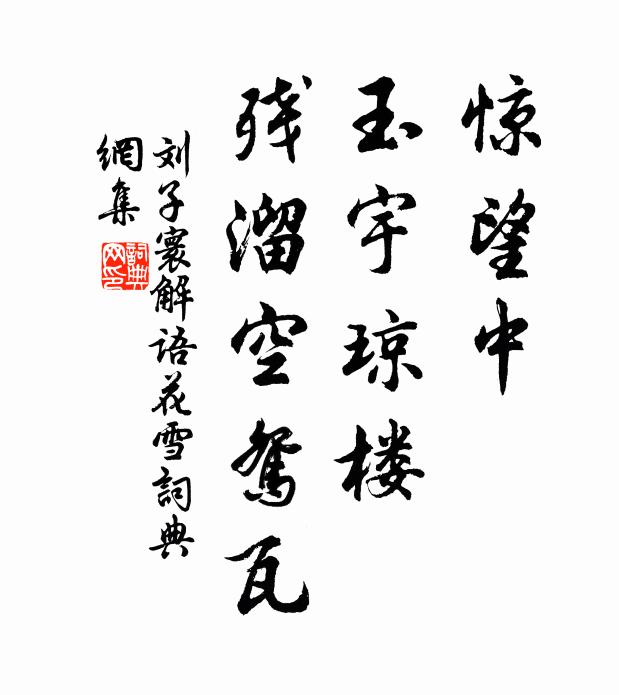 惊望中
玉宇琼楼
残溜空鸳瓦
刘子寰解语花雪詞典
網集
詞典
网印